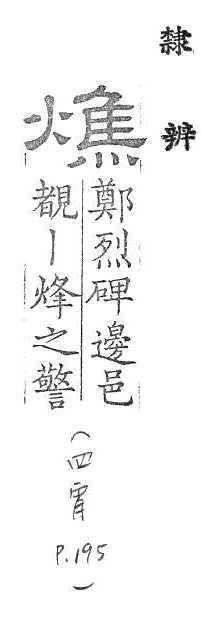 隸辨
燋
鄭烈碑邊邑
覩丨烽之警
（四宵
P.195）